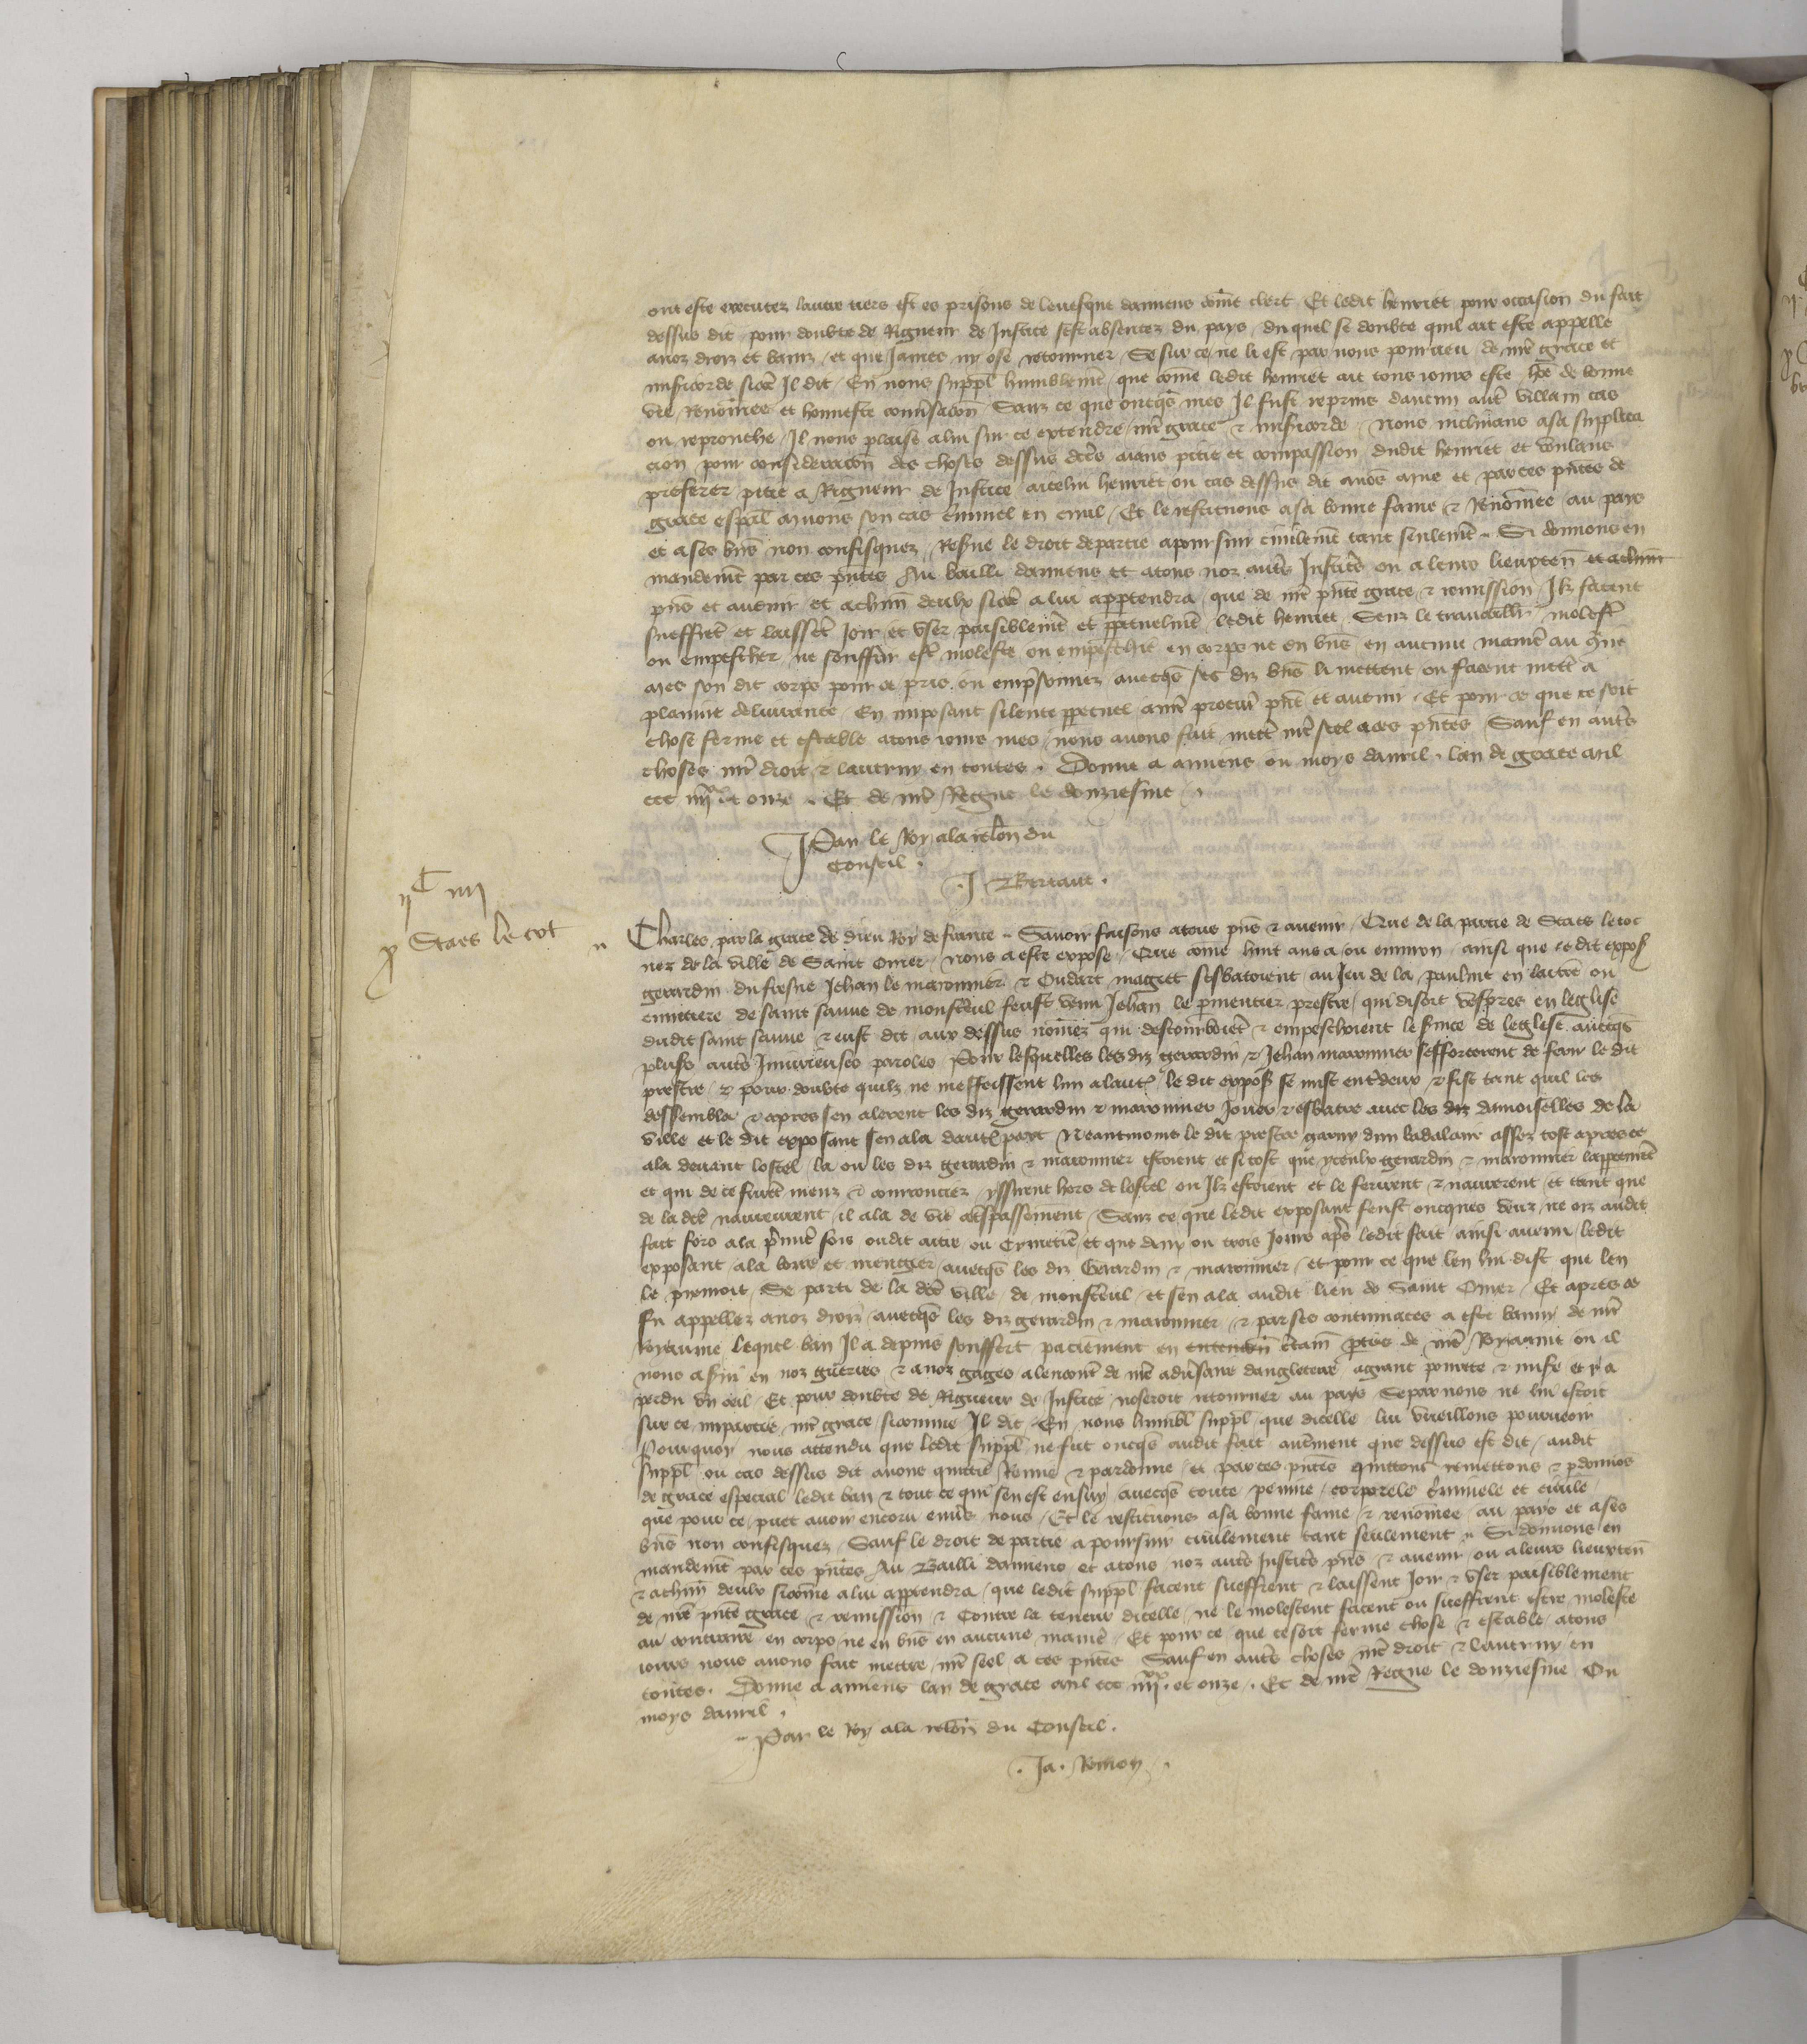 ont este executez lautre tiers est es prisons de levesque damiens come clerc Et ledit henriet pour occasion du fait
dessus dit pour doubte de Rigueur de Justice sest absentez du pays du quel se doubte quil ait este appelle
a noz droiz et baniz et que James ny ose retourner Se sur ce ne li est par nous pourveu de nre grace et
mis'icorde sicõe Il dit En nous suppl humblemẽt que cõme ledit henriet ait tous jours este hõe de bonne
vie Renõmee et honneste conv'sacõn Sanz ce que oncq's mes Il fust reprins daucun aut' villain cas
ou reprouche Il nous plaise a lui sur ce extendre nre grace & mis'icorde Nous inclinans a sa supplica
cion pour consideracõn des choses dessus dc̃es aians pitie et compassion dudit henriet et voulans
preferer pitie a Rigueur de Justice a icelui henriet ou cas dessus dit avõs mue et par ces pñtes de
grace esp̃al muons son cas c'minel en civil Et le restituons a sa bonne fame & Renõmee au pays
et a ses biẽs non confisquez Res've le droit de partie a poursuir civilemẽt tant seulemẽt Si donnons en
mandemẽt par ces pñtes Au bailli damiens et a tous noz aut's Justic's ou a leurs lieuxteñ et a chũn
pñs et avenir et a chũn deulx sicõe a lui app'tendra que de nre pñte grace & remission Ilz facent
sueffrẽt et laissẽt Joir et user paisiblemẽt et p'petuelmẽt ledit henriet Senz le travaillr molest'
ou empescher ne souffrir est' moleste ou empeschie en corps ne en biẽs en aucune manie' au q̃tre
mes son dit corps pour ce pris ou emp'sonnez avecq's ses diz biẽs li mettent ou facent mett' a
plainne delivrance En imposant silence p'petuel a nre procur' pñt et avenir Et pour ce que ce soit
chose ferme et estable a tous jours mes nous avons fait mett' nre seel a ces pñtes Sauf en aut's
choses nre droit & lautruy en toutes Donne a amiens ou moys davril lan de grace mil
ccc iiijxx et onze Et de nre Regne le douziesme
Par le Roy a la relõn du
Conseil
J Bertaut
ijC iiij
p' Staes le cot
Charles par la grace de dieu Roy de france Savoir faisons a tous pñs & avenir Que de la partie de Staes le coc
nez de la ville de Saint Omer nous a este expose Que cõme huit ans a ou environ ainsi que ce dit expos'
gerardin du fresne Jehan le maronnier & Oudart maguet sesbatoient au Jeu de la paulme en laitre ou
cimitiere de saint sauve de monsteul feust venu Jehan le p'mentier prestre qui disoit vespres en leglise
dudit saint sauve & eust dit aux dessus nõmez qui destourboiẽt & empeschoient le s'vice de leglise avecq's
plus's aut's Jnjurieuses paroles Pour lesquelles les diz gerardin & Jehan maronnier sefforcerent de ferir le dit
prestre & pour doubte quilz ne meffeissent lun a laut' le dit expos' se mist ent' deux & fist tant quil les
dessembla & apres sen alerent les diz gerardin & maronnier Jouer & esbatre avec les diz damoiselles de la
ville et le dit exposant sen ala daut' part Neantmoins le dit prestre garny dun badalaire assez tost apres ce
ala devant lostel la ou les diz gerardin & maronnier estoient et si tost que yceulx gerardin & maronnier lapperceurẽt
et qui de ce furẽt meuz & couroucez yssirent hors de lostel ou Ilz estoient et le ferirent & navrerent et tant que
de la dc̃e navreure il ala de vie a t'spassement Sanz ce que ledit exposant feust oncques veuz ne oiz audit
fait fors a la p'mie' fois oudit aitre ou Cymetie' et que deux ou trois Jours ap's ledit fait ainsi avenu ledit
exposant ala boire et mengier avecq's les diz Gerardin & maronnier et pour ce que len lui dist que len
le prenroit Se parti de la dc̃e ville de monsteul et sen ala audit lieu de Saint Omer Et apres ce
fu appellez a noz droiz avecq's les diz gerardin & maronnier & par ses contumaces a este bannie de nre
Royaume Lequel ban Il a depuis souffert paciẽment en c'tain p'ties de nre Royaume ou il
nous a s'vi en noz guerres & a noz gages alencont' de nre adv'saire dangleterre a grant povrete & mis'e et y a
perdu un oeil Et pour doubte de Rigueur de Justice noseroit retourner au pays Se par nous ne lui estoit
sur ce impartie nre grace sicomme Il dit En nous humbl' suppl' que dicelle lui vueillons pourveoir
Pourquoy nous attendu que ledit suppl' ne fut oncq's audit fait aut'ment que dessus est dit audit
suppl' ou cas dessus dit avons quittie Remis & pardonne et par ces pñtes quittons remettons & p'donnõs
de grace especial ledit ban & tout ce qui sen est ensuy avecq's toute peinne corporele c'minele et civile
que pour ce puet avoir encoru envs nous Et le restituons a sa bonne fame & renõmee au pays et a ses
biẽs non confisquez Sauf le droit de partie a poursuir civilement tant seulement Si donnons en
mandemẽt par ces pñtes Au Bailli damiens et a tous noz aut's Justic's pñs & avenir ou a leurs lieuxteñ
& a chũn deulx sicõme a lui app'tendra que ledit suppl' facent sueffrent & laissent Joir & user paisiblement
de nre pñte grace & remission & Contre la teneur dicelle ne le molestent facent ou sueffrent estre moleste
au contraire en corps ne en biẽs en aucune manie' Et pour ce que ce soit ferme chose & estable a tous
jours nous avons fait mettre nre seel a ces pñtes Sauf en aut's choses nre droit & lautruy en
toutes Donne a amiens lan de grace mil ccc iiijxx et onze Et de nre Regne le douziesme Ou
moys davril
Par le Roy a la relõn du Conseil
Ja. Remon